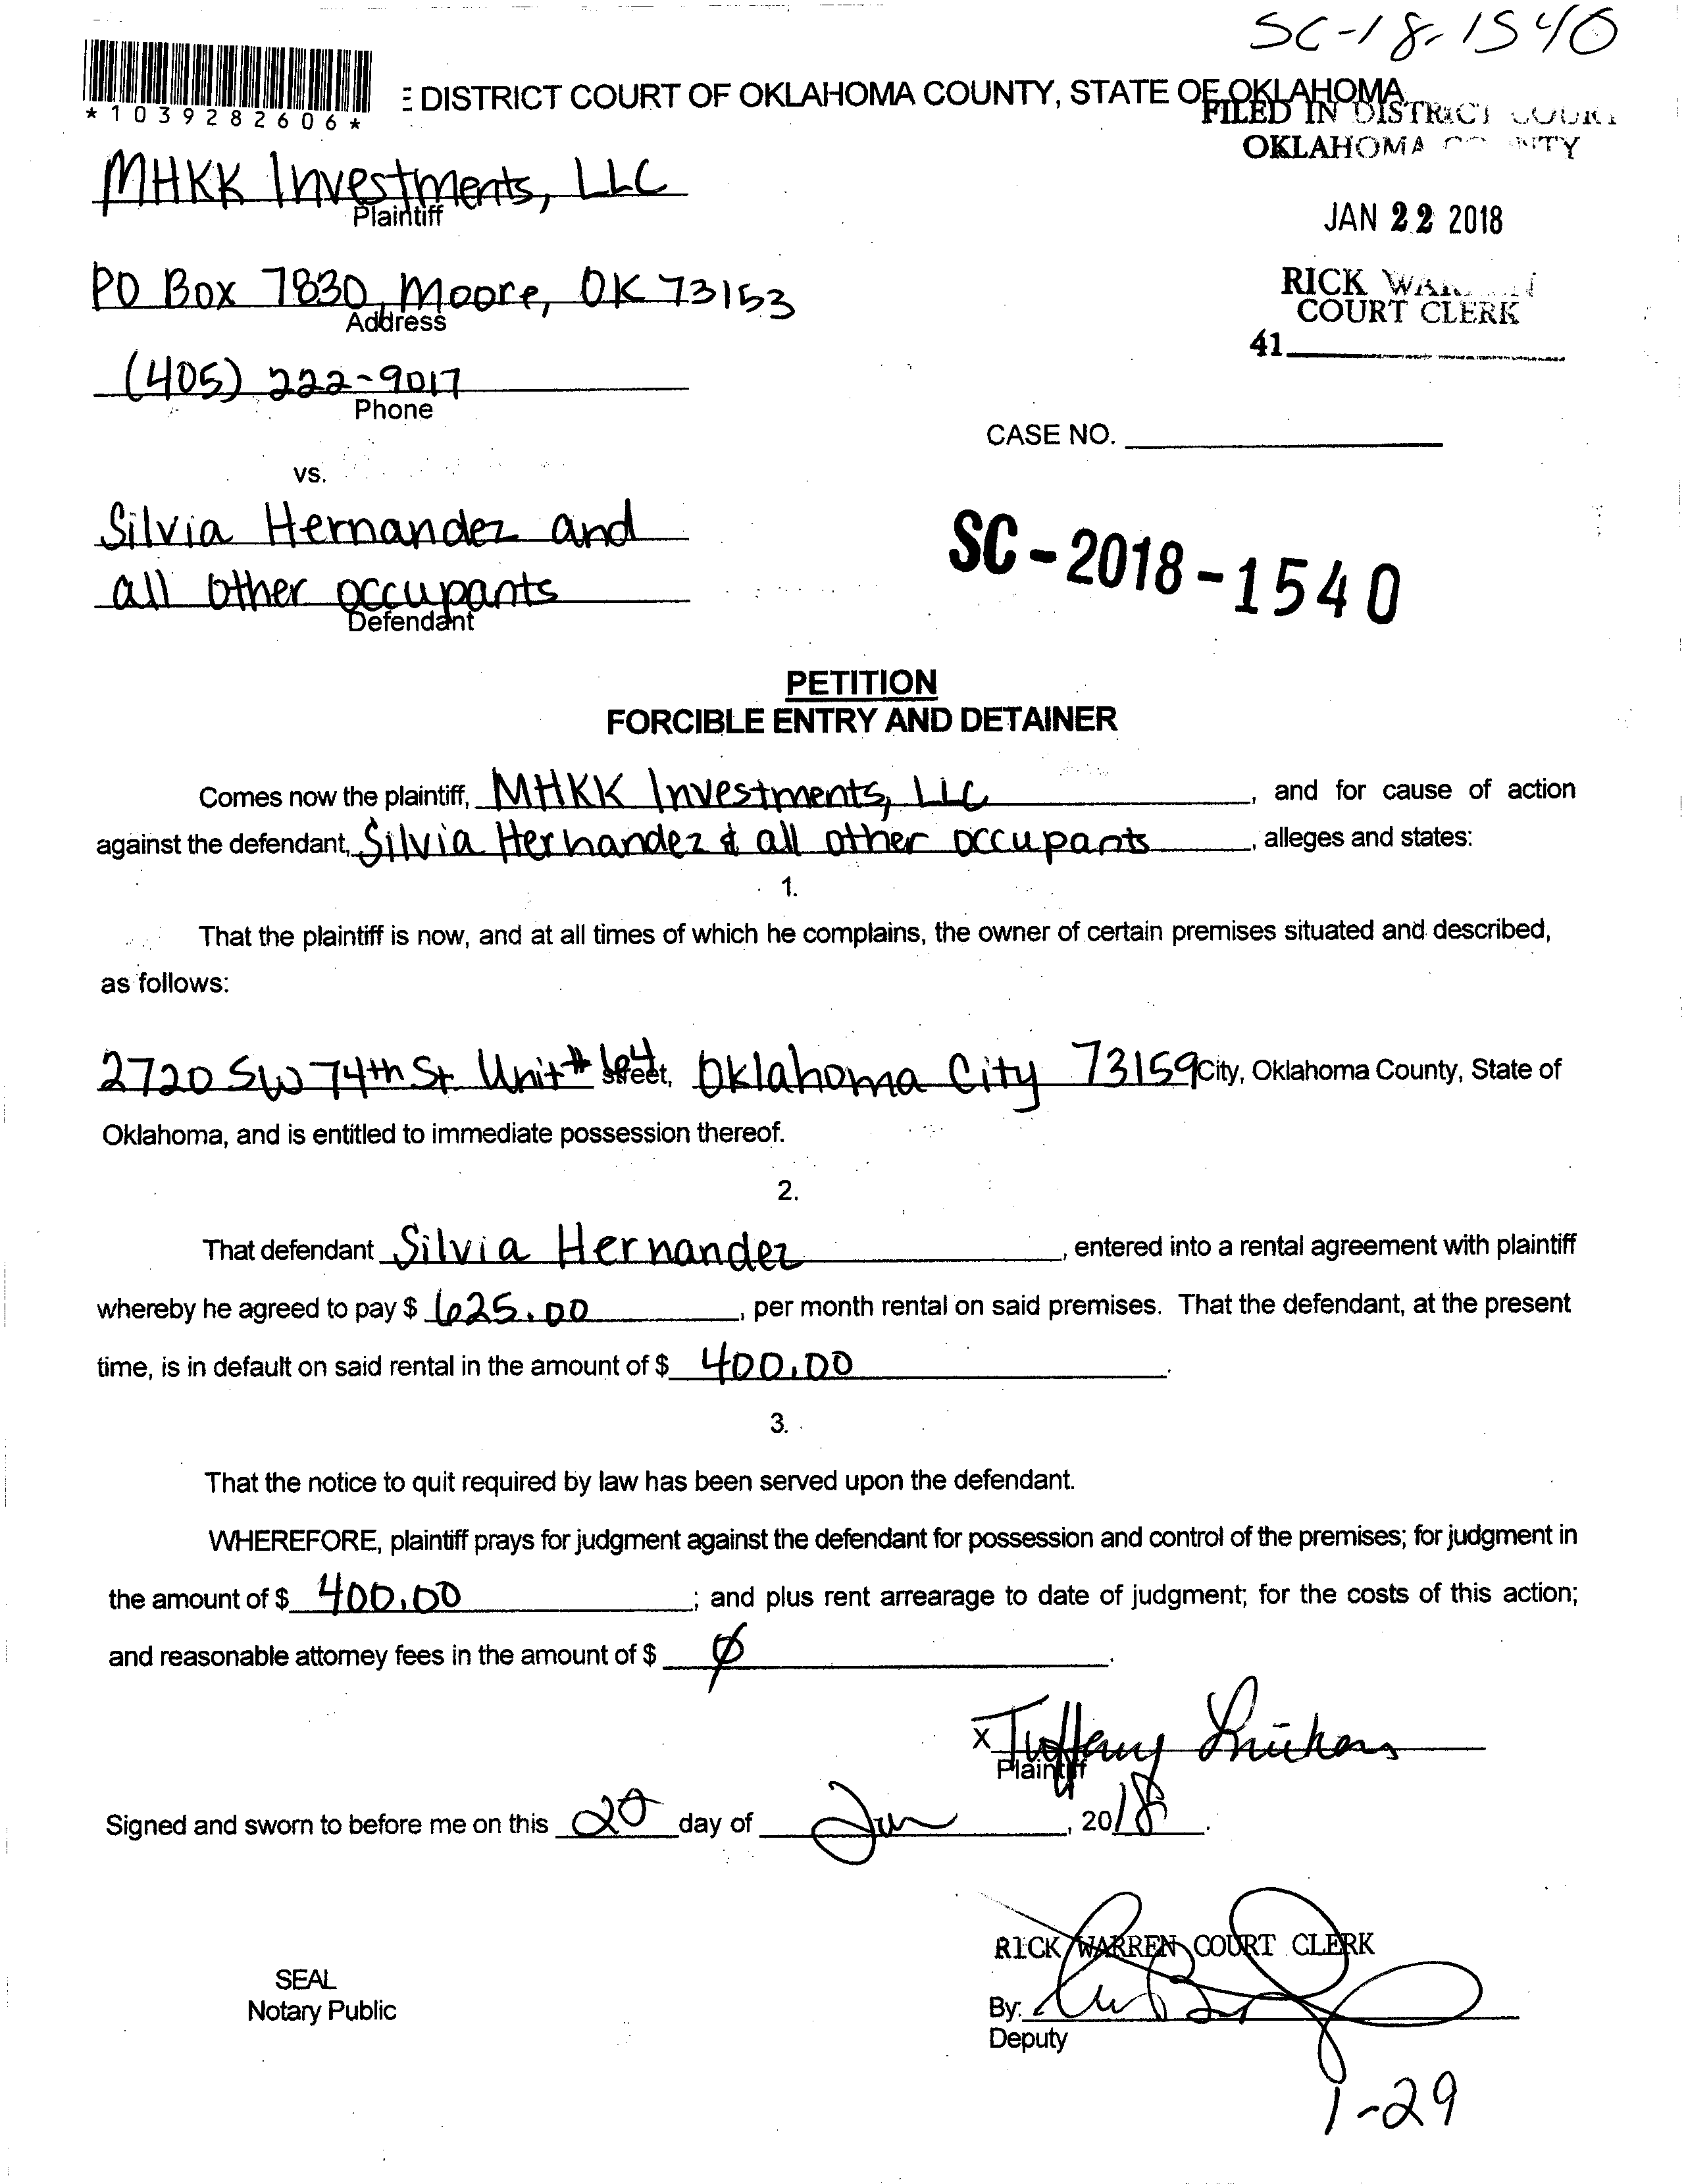 SC-18-1540
*1039282606*
E DISTRICT COURT OF OKLAHOMA COUNTY, STATE OF OKLAHOMA
FILED IN DISTRICT COURT
OKLAHOMA COUNTY
MHKK Investments, LLC
Plaintiff
JAN 22 2018
PO Box 7830, Moore, OK 73153
Address
RICK WARREN
COURT CLERK
41
(405) 222-9017
Phone
CASE NO.
vs.
Silvia Hernandez and
all other occupants
Defendant
SC-2018-1540
PETITION
FORCIBLE ENTRY AND DETAINER
Comes now the plaintiff, MHKK Investments, LLC, and for cause of action
against the defendant, Silvia Hernandez & all other occupants, alleges and states:
1.
That the plaintiff is now, and at all times of which he complains, the owner of certain premises situated and described,
as follows:
2720 SW 74th St Unit# 64 street, Oklahoma City 73159 City, Oklahoma County, State of
Oklahoma, and is entitled to immediate possession thereof.
2.
That defendant Silvia Hernandez, entered into a rental agreement with plaintiff
whereby he agreed to pay $ 625.00, per month rental on said premises. That the defendant, at the present
time, is in default on said rental in the amount of $ 400.00.
3.
That the notice to quit required by law has been served upon the defendant.
WHEREFORE, plaintiff prays for judgment against the defendant for possession and control of the premises; for judgment in
the amount of $ 400.00; and plus rent arrearage to date of judgment; for the costs of this action;
and reasonable attorney fees in the amount of $ ∅.
x Tiffany
Plaintiff
Signed and sworn to before me on this 20 day of Jan, 2018.
RICK WARREN COURT CLERK
SEAL
Notary Public
By:
Deputy
1-29